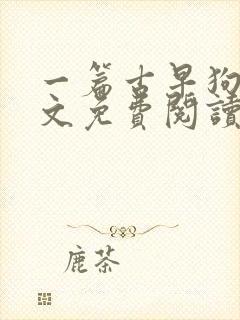 一篇古早狗
文免費閱讀
鹿茶